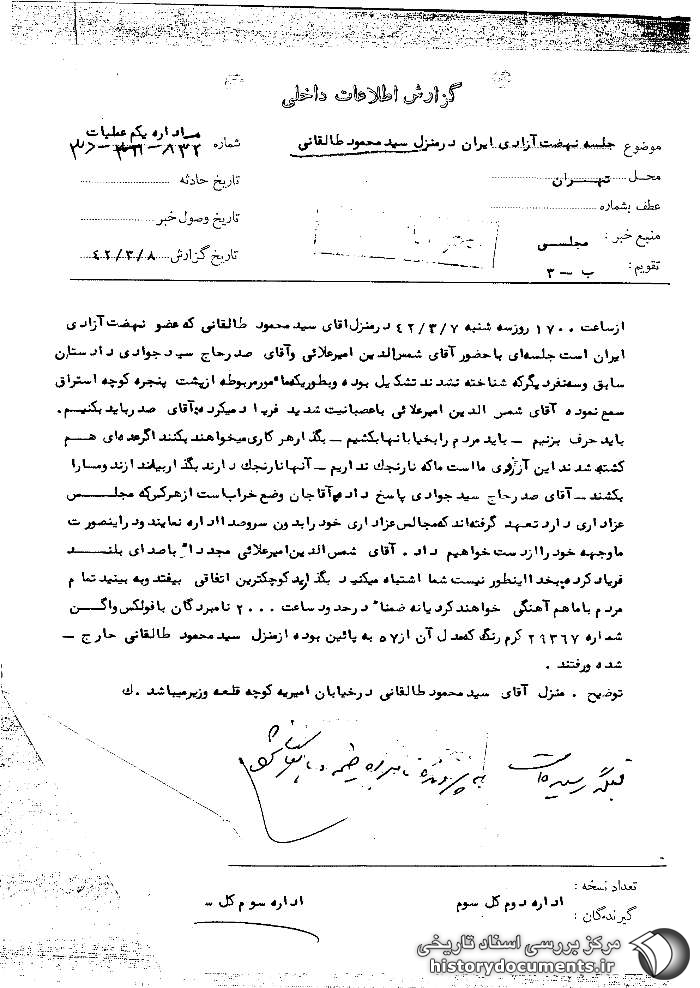 گزارش اطلاعات داخلی
موضوع جلسه نهضت آزادی ایران در منزل سید محمود طالقانی
محل تهران
عطف بشماره
منبع خبر : مجلسی
تقویم : ب – ۳
از اداره یکم عملیات
شماره
تاریخ حادثه
تاریخ وصول خبر
تاریخ گزارش ۴۲/۳/۸
از ساعت ۱۷۰۰ روز سه شنبه ۴۲/۳/۷ در منزل آقای سید محمود طالقانی که عضو نهضت آزادی
ایران است جلسه‌ای با حضور آقای شمس الدین امیرعلائی و آقای صدر حاج سید جوادی دادستان
سابق و سه نفر دیگر که شناخته نشدند تشکیل بوده و بطوریکه مأمور مربوطه از پشت پنجره کوچه استراق
سمع نموده آقای شمس الدین امیرعلائی با عصبانیت شدید فریاد میکرده آقای صدر باید بکنیم.
باید حرف بزنیم – باید مردم را بخیابانها بکشیم – بگذار هر کاری میخواهند بکنند اگر عده‌ای هم
کشته شدند این آرزوی ما است ما که نارنجک نداریم – آنها نارنجک دارند بگذار بیاندازند و ما را
بکشند – آقای صدر حاج سید جوادی پاسخ داده آقا جان وضع خراب است از هر کس که مجلس
عزاداری دارد تعهد گرفته‌اند که مجالس عزاداری خود را بدون سر و صدا اداره نمایند و در اینصورت
ما وجهه خود را از دست خواهیم داد . آقای شمس الدین امیرعلائی مجدداً با صدای بلند
فریاد کرده بخدا اینطور نیست شما اشتباه میکنید بگذارید کوچکترین اتفاقی بیفتد و به بینید تمام
مردم با ما هم آهنگی خواهند کرد یا نه ضمناً در حدود ساعت ۲۰۰۰ نامبردگان با فولکس واگن
شماره ۲۹۳۶۷ کرم رنگ که مدل آن از ۵۷ به پائین بوده از منزل سید محمود طالقانی خارج –
شده و رفتند .
توضیح . منزل آقای سید محمود طالقانی در خیابان امیریه کوچه قلعه وزیر میباشد . ک
به پرونده نامبرده ضمیمه و بایگانی شود
تعداد نسخه :
گیرندگان : اداره دوم کل سوم
اداره سوم کل س
مرکز بررسی اسناد تاریخی
historydocuments.ir